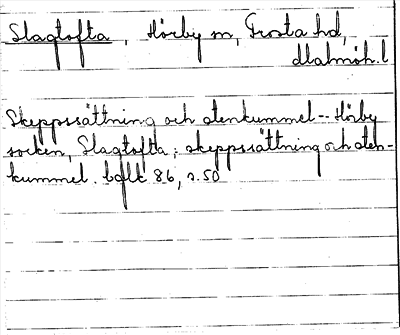 Slagtofta, Hörby sn, Frosta hd,
Malmöh. l
Skeppssättning och stenkummel -- Hörby
socken, Slagtofta; skeppssättning och sten-
kummel. 86, s. 50